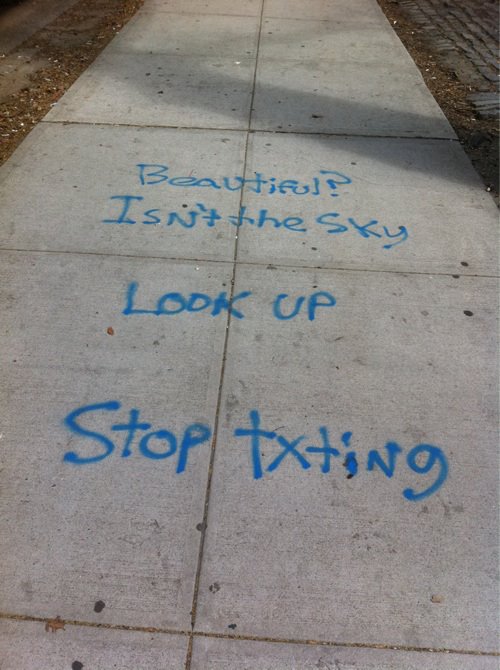 Beautiful?
Isn't the Sky
LOOK UP
Stop txting